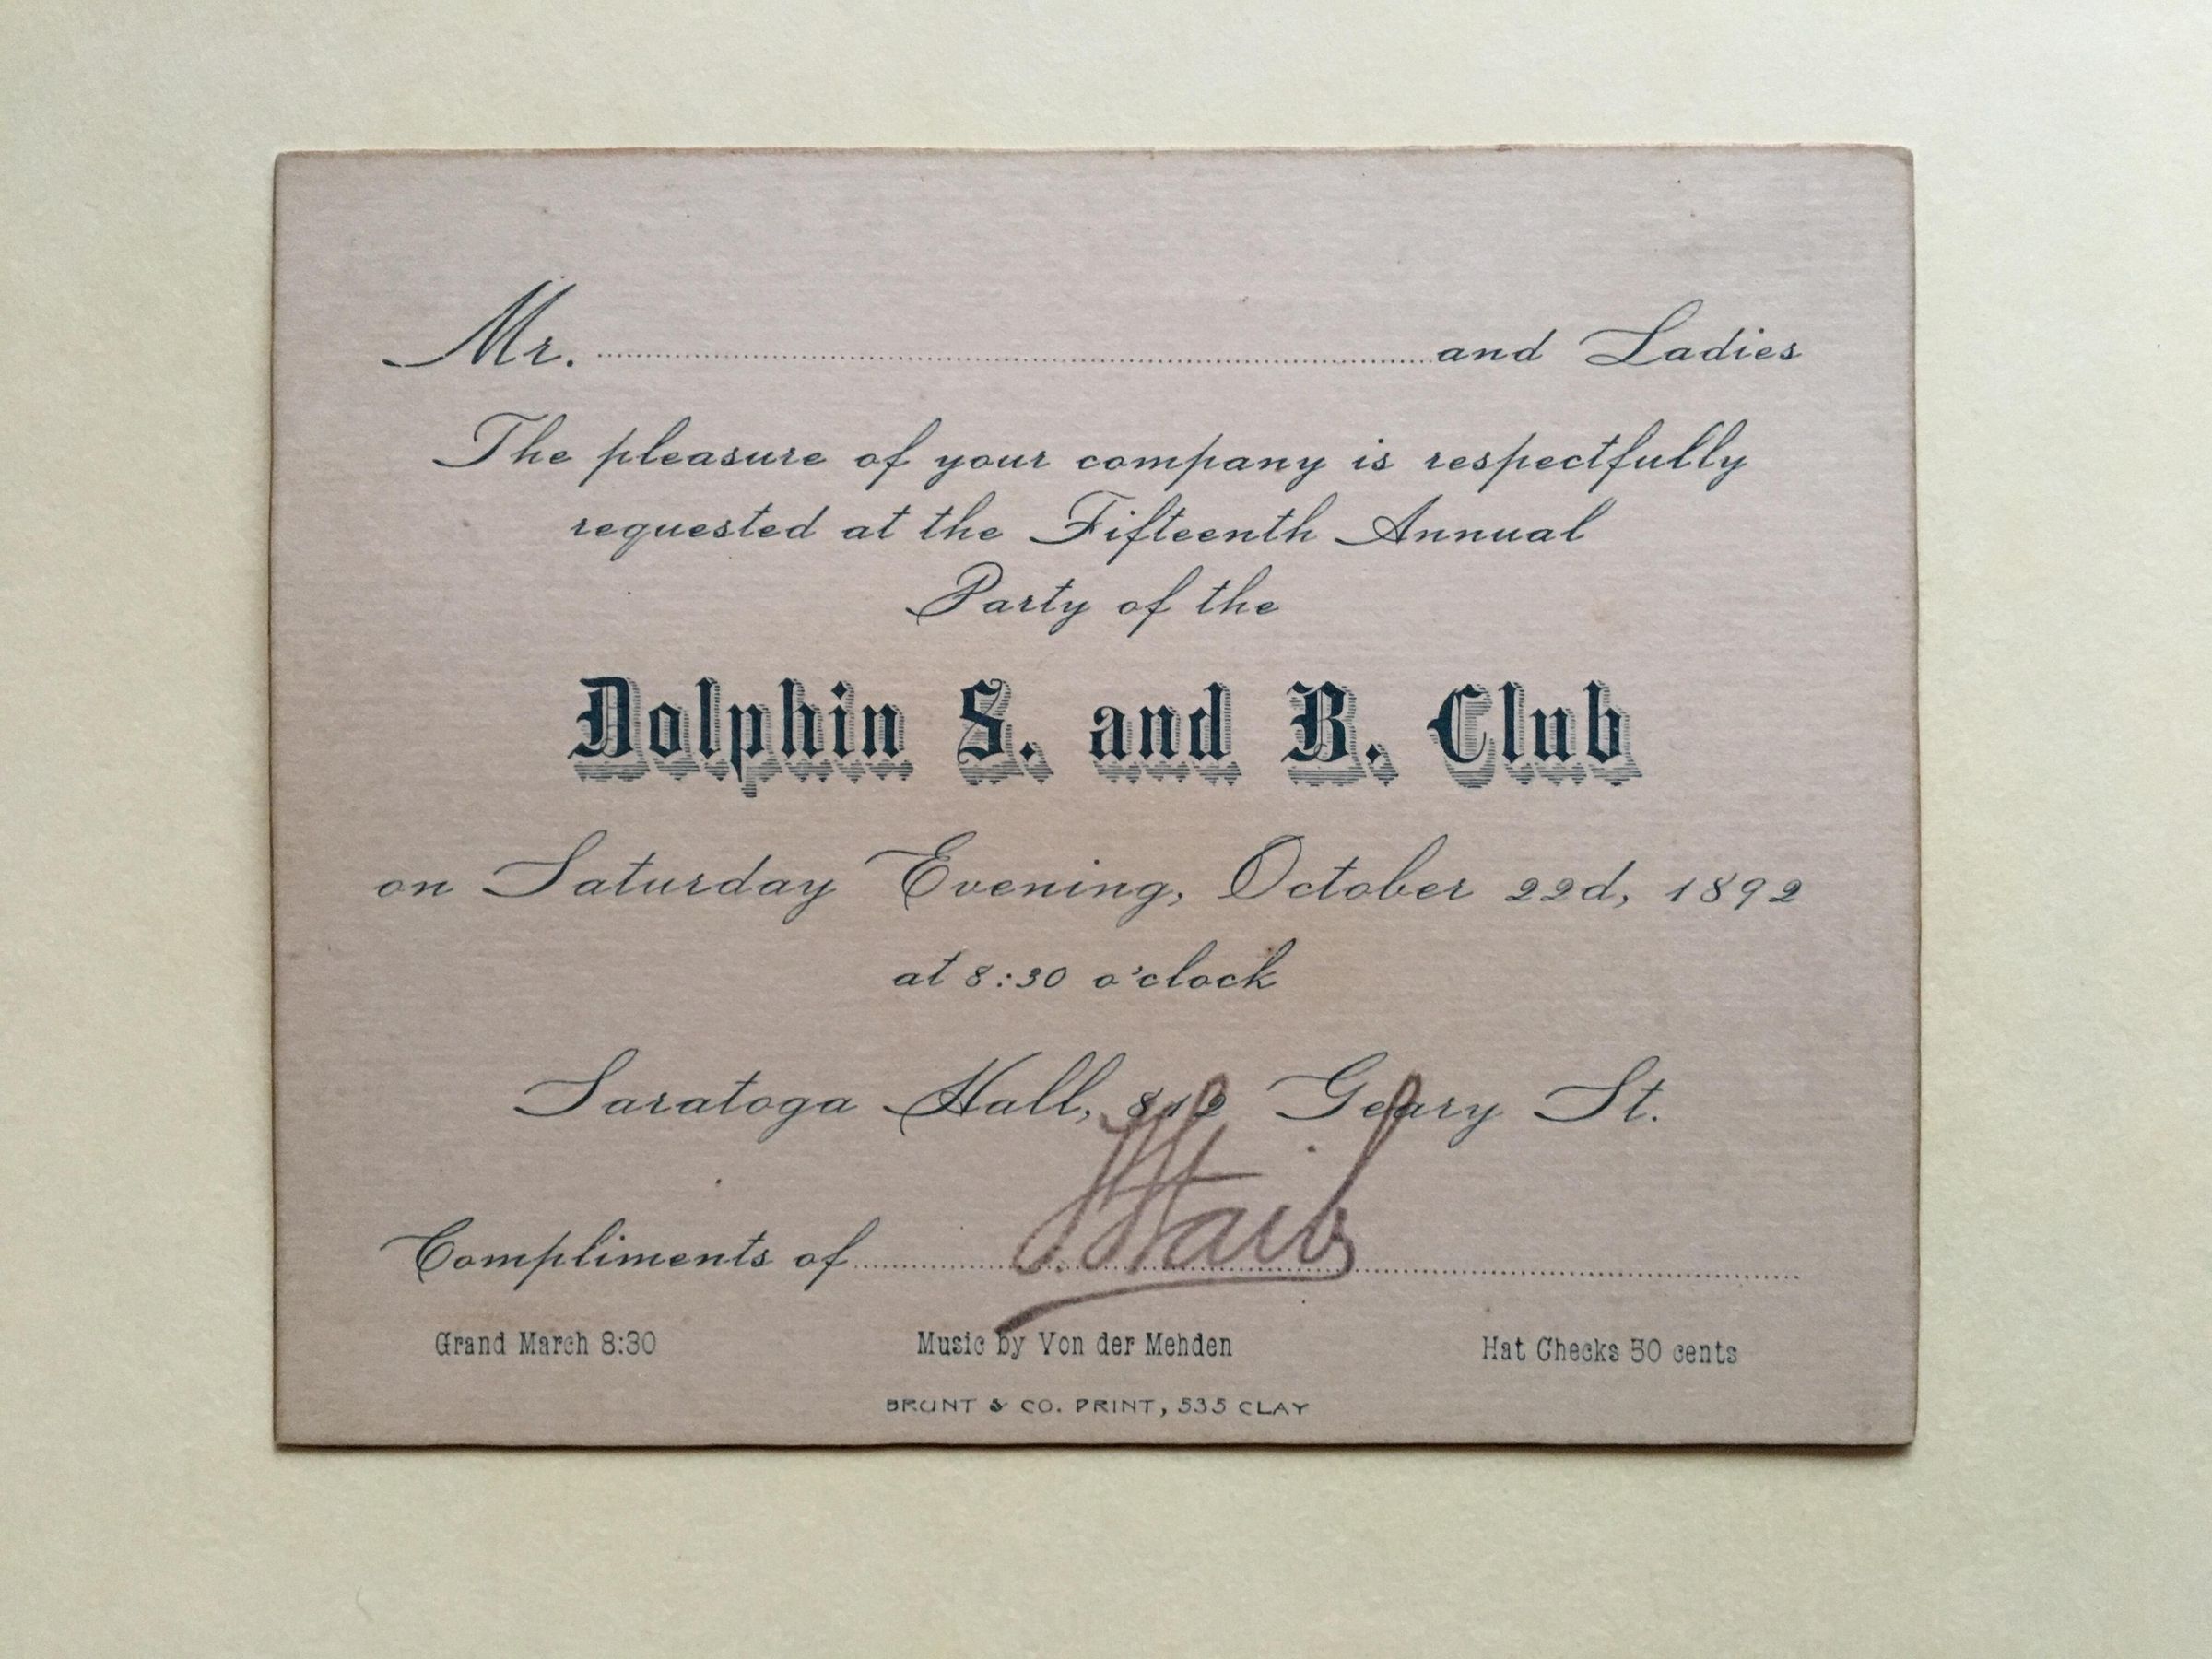 Mr. and Ladies
The pleasure of your company is respectfully
requested at the Fifteenth Annual
Party of the
Dolphin S. and B. Club
on Saturday Evening, October 22d, 1892
at 8:30 o'clock
Saratoga Hall, 812 Geary St.
Compliments of
Grand March 8:30 Music by Von der Mehden Hat Checks 50 cents
BRUNT & CO. PRINT, 535 CLAY